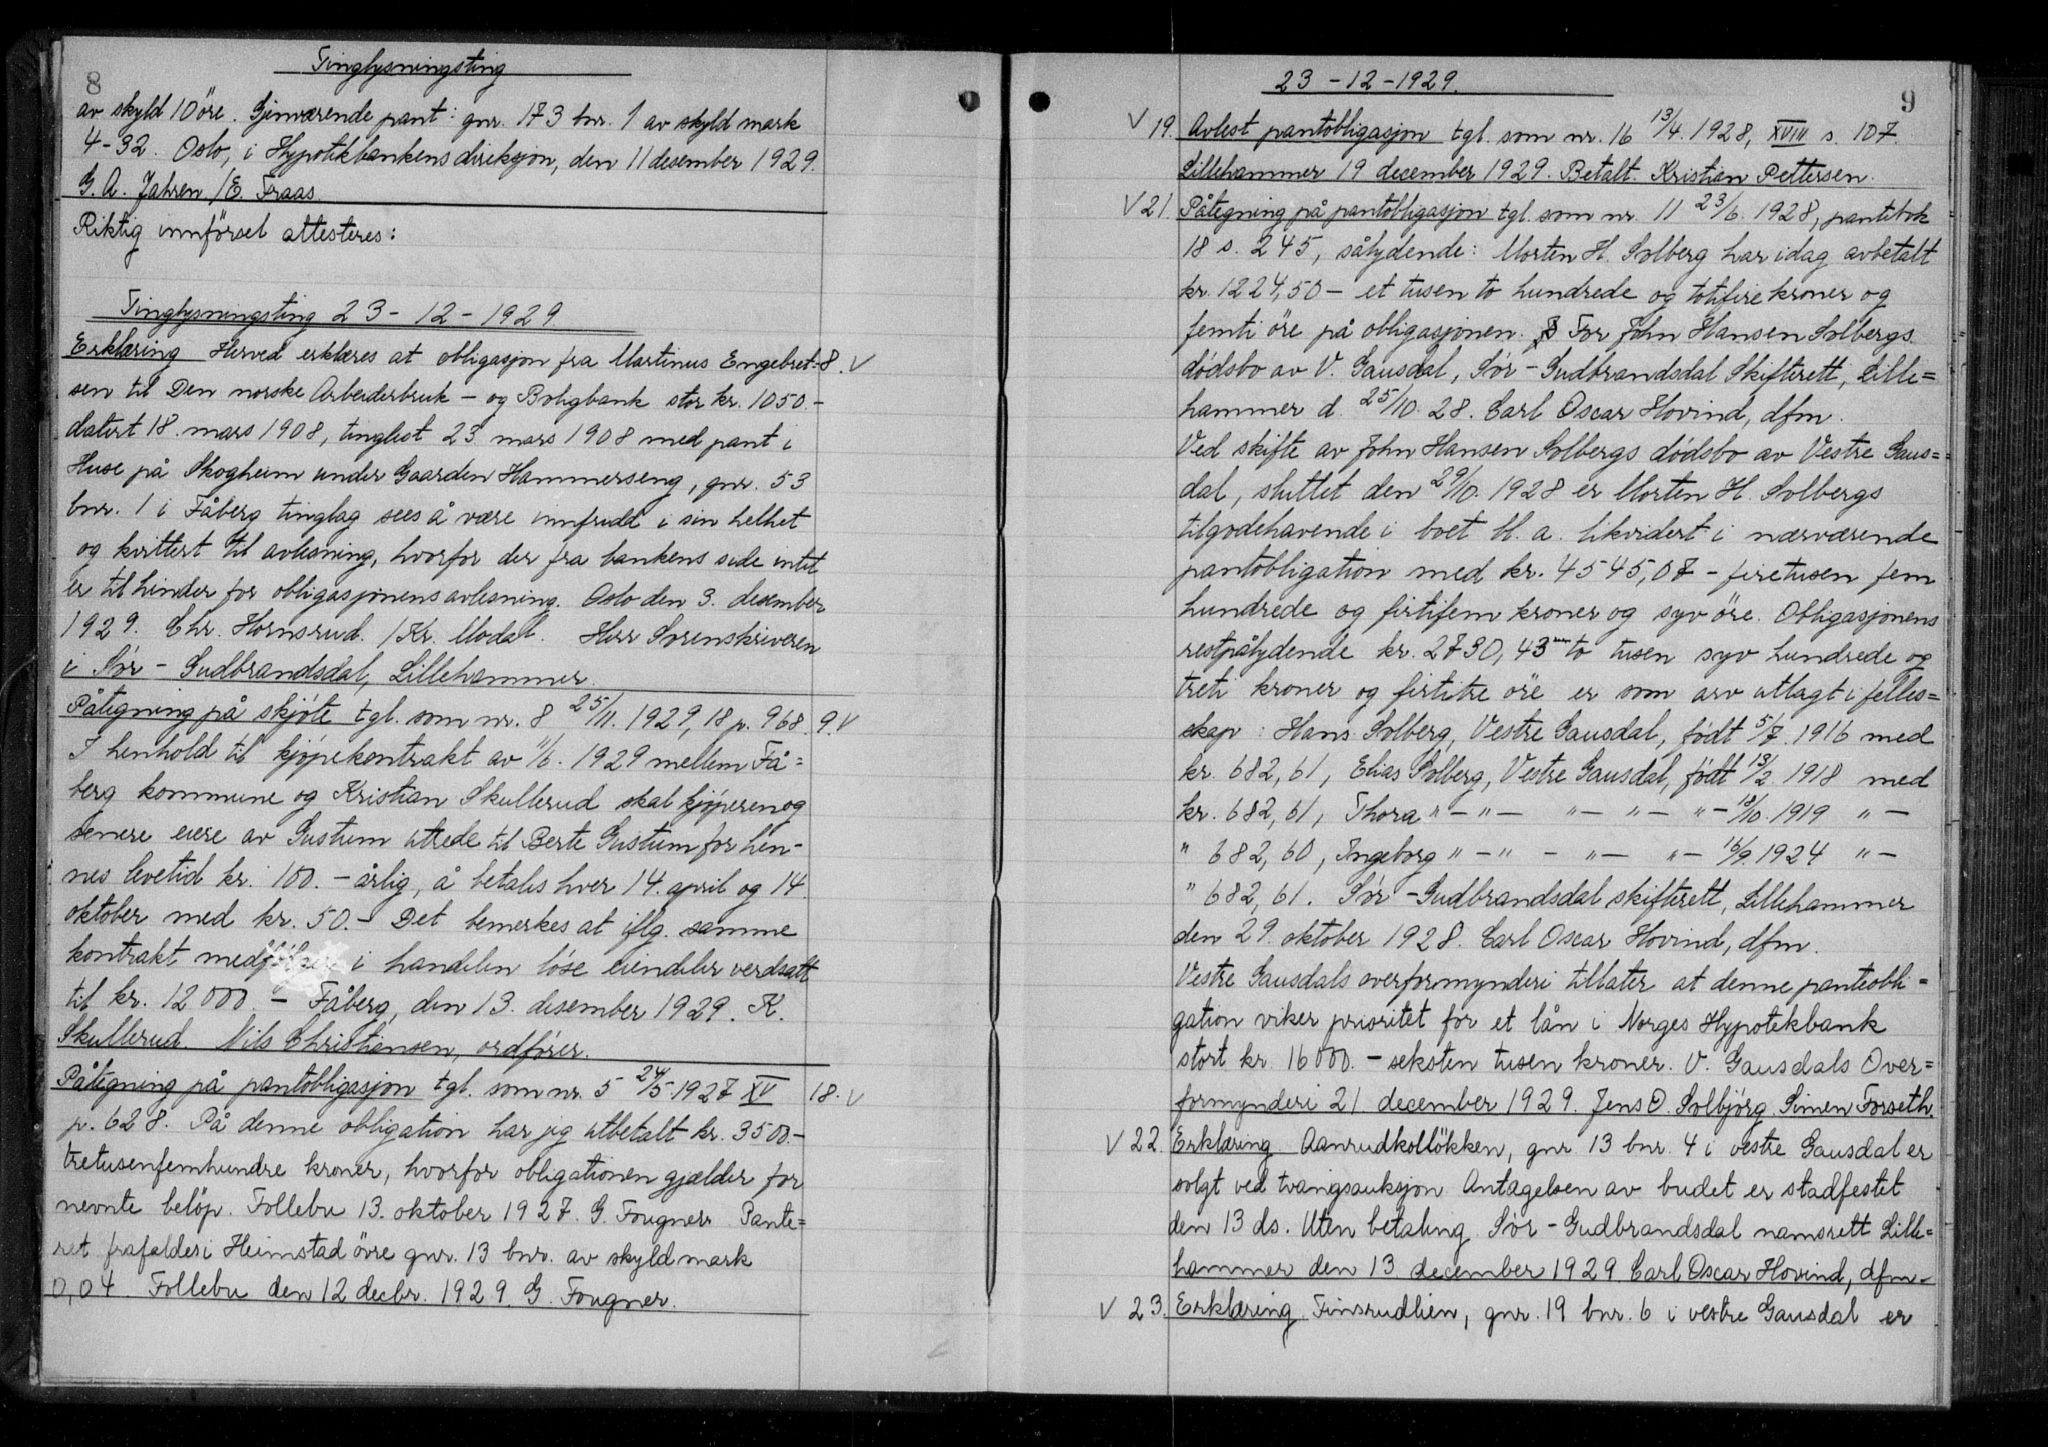 8
Tinglysningsting
av skyld 10 öre. Gjenværende pant: gnr. 173 bnr. 1 av skyld mark
4-32. Oslo, i Hypotekbankens direksjon, den 11 desember 1929.
G. A. Jahren /E. Fraas.
Riktig innförsel attesteres:
Tinglysningsting 23-12-1929
Erklæring Herved erklæres at obligasjon fra Martinus Engebret- 8. V
sen til Den norske Arbeiderbruk - og Boligbank stor kr. 1050.-
datert 18. mars 1908, tinglest 23. mars 1908 med pant i
Huse på Skogheim under Gaarden Hammerseng, gnr. 53
bnr. 1 i Fåberg tinglag sees å være innfridd i sin helhet
og kvittert til avlesning, hvorfor der fra bankens side intet
er til hinder for obligasjonens avlesning. Oslo den 3. desember
1929. Chr. Hornsrud. /Kr. Modal. Herr Sorenskriveren
i Sör - Gudbrandsdal, Lillehammer.
Påtegning på skjöte tgl. som nr. 8 25/11. 1929, 18 p. 968. 9. V
I henhold til kjöpekontrakt av 11/6. 1929 mellem Få=
berg kommune og Kristian Skullerud skal kjöperen og
senere eiere av Gustum utrede til Berte Gustum for hen-
nes levetid kr. 100.- årlig, å betales hver 14. april og 14.
oktober med kr. 50.- Det bemerkes at iflg. samme
kontrakt medfölger i handelen löse eiendeler verdsatt
til kr. 12000.- Fåberg, den 13. desember 1929. K.
Skullerud. Nils Christiansen, ordförer.
Påtegning på pantobligasjon tgl. som nr. 5 24/5-1927 XV 18. V
p. 628. På denne obligation har jeg utbetalt kr. 3500.-
tretusenfemhundre kroner, hvorfor obligationen gjælder for
nevnte belöp. Follebu 13. oktober 1927. G. Fougner. Pante=
ret frafaldes i Heimstad övre gnr. 13 bnr. av skyld mark
0,04. Follebu den 12 decbr. 1929. G. Fougner.
23-12-1929.
9
V 19. Avlest pantobligasjon tgl. som nr. 16 13/4. 1928, XVIII s. 107.
Lillehammer 19 december 1929. Betalt. Kristian Pettersen.
V 21. Påtegning på pantobligasjon tgl. som nr. 11 23/6. 1928, pantebok
18 s. 245, sålydende: Morten H. Solberg har idag avbetalt
kr. 1224,50 - et tusen to hundrede og totifire kroner og
femti öre på obligasjonen. For John Hansen Solbergs
dödsbo av V. Gausdal, Sör - Gudbrandsdal Skifterett, Lille=
hammer d. 25/10. 28. Carl Oscar Hovind, dfm.
Ved skifte av John Hansen Solbergs dödsbo av Vestre Gaus=
dal, sluttet den 29/10. 1928 er Morten H. Solbergs
tilgodehavende i boet bl. a. likvidert i nærværende
pantobligation med kr. 4545,07 - firetusen fem
hundrede og firtifem kroner og syv öre. Obligasjonens
restpålydende kr. 2730,43 to tusen syv hundrede og
treti kroner og firtitre öre er som arv utlagt i felles=
skap: Hans Solberg, Vestre Gausdal, födt 5/7. 1916 med
kr. 682,61, Elias Solberg, Vestre Gausdal, födt 13/2 1918 med
kr. 682,61, Thora " - " - " - " - " - 18/10. 1919 " -
" 682,60, Ingeborg " - " - " - " - 16/9. 1924 " -
" 682,61. Sör - Gudbrandsdal skifterett, Lillehammer
den 29. oktober 1928. Carl Oscar Hovind, dfm.
Vestre Gausdals overformynderi tillater at denne panteobli=
gation viker prioritet for et lån i Norges Hypotekbank
stort kr. 16000.- seksten tusen kroner. V. Gausdals Over=
formynderi 21 december 1929. Jens O. Solbjörg. Simen Forseth.
V 22. Erklæring Aanrudkollökken, gnr 13 bnr. 4 i vestre Gausdal er
solgt ved tvangsauksjon Antagelsen av budet er stadfestet
den 13 ds. Uten betaling. Sör - Gudbrandsdal namsrett Lille=
hammer den 13 december 1929 Carl Oscar Hovind, dfm-
V 23. Erklæring. Finsrudlien, gnr. 19 bnr. 6 i vestre Gausdal er